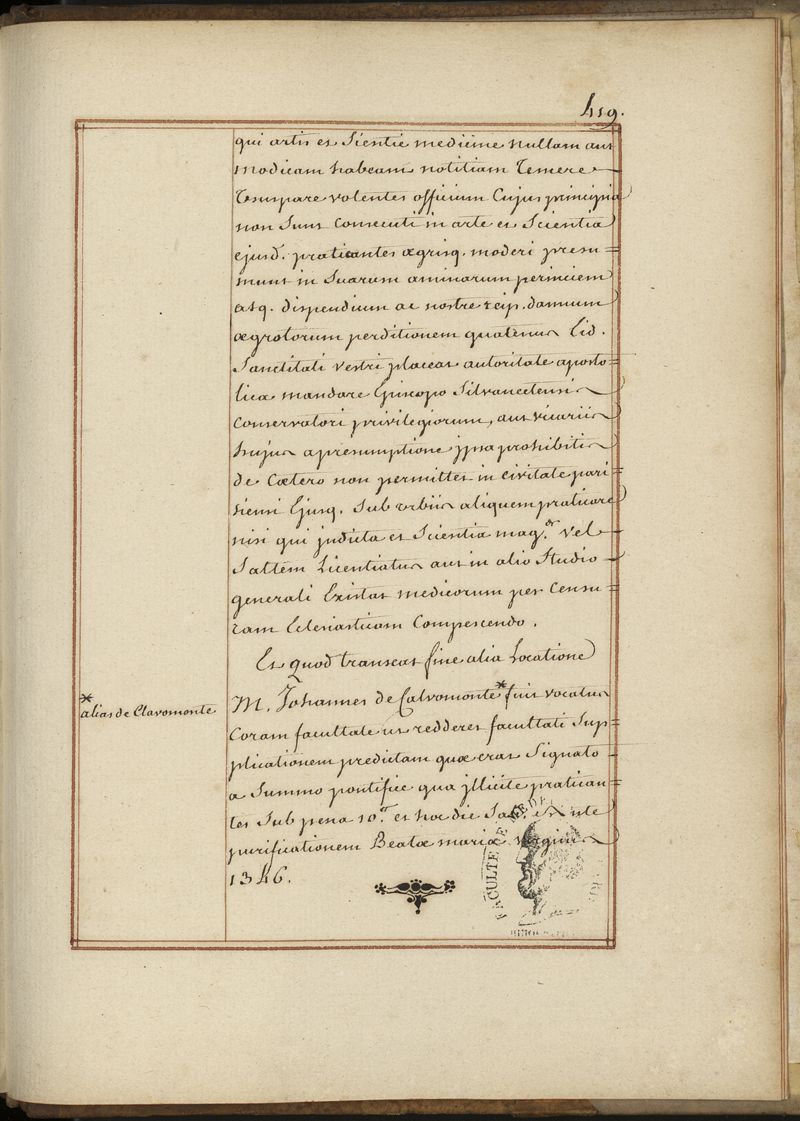 419.
qui artis et Sientie mediine nullam aut
modicam habeant notitiam Temere
Usurpare volentes officium Cujus principia
non Sunt Consecuti in arte et Scientia
ejusd. praticantes ægrisq. mederi presu=
munt in Suarum animarum perniciem
atq. dispendium ac nostre reip. damnum
ægrotorum perditionem quatenus Eid.
Sanctitati vestri placeat autoritate aposto=
lica mandare Episcopo Silvanectensi
Conservatori privilegiorum, aut vicariis
hujus a presumptione ipsa prohibitis
de Cætero non permittet in civitate pari=
siensi Ejusq. Suburbiis aliquem praticare
nisi qui judicta et Scientia mag.er vel
Saltem Licentiatus aut in alio Studio
generali Existat medicorum per Censu=
ram Eclesiasticam Compescendo.
Et Quod transeat sine alia Locatione
*
alias de Claromonte
M. Johannes de Calvomonte* fuit vocatus
Coram facultate ut redderet facultati Sup=
plicationem predictam quæ erat Signato
a Summo pontifice qua illicite pratican=
tes Sub pena 10.
purificationem Beatæ mariæ virginis
1346.
FACULTE DE MEDE